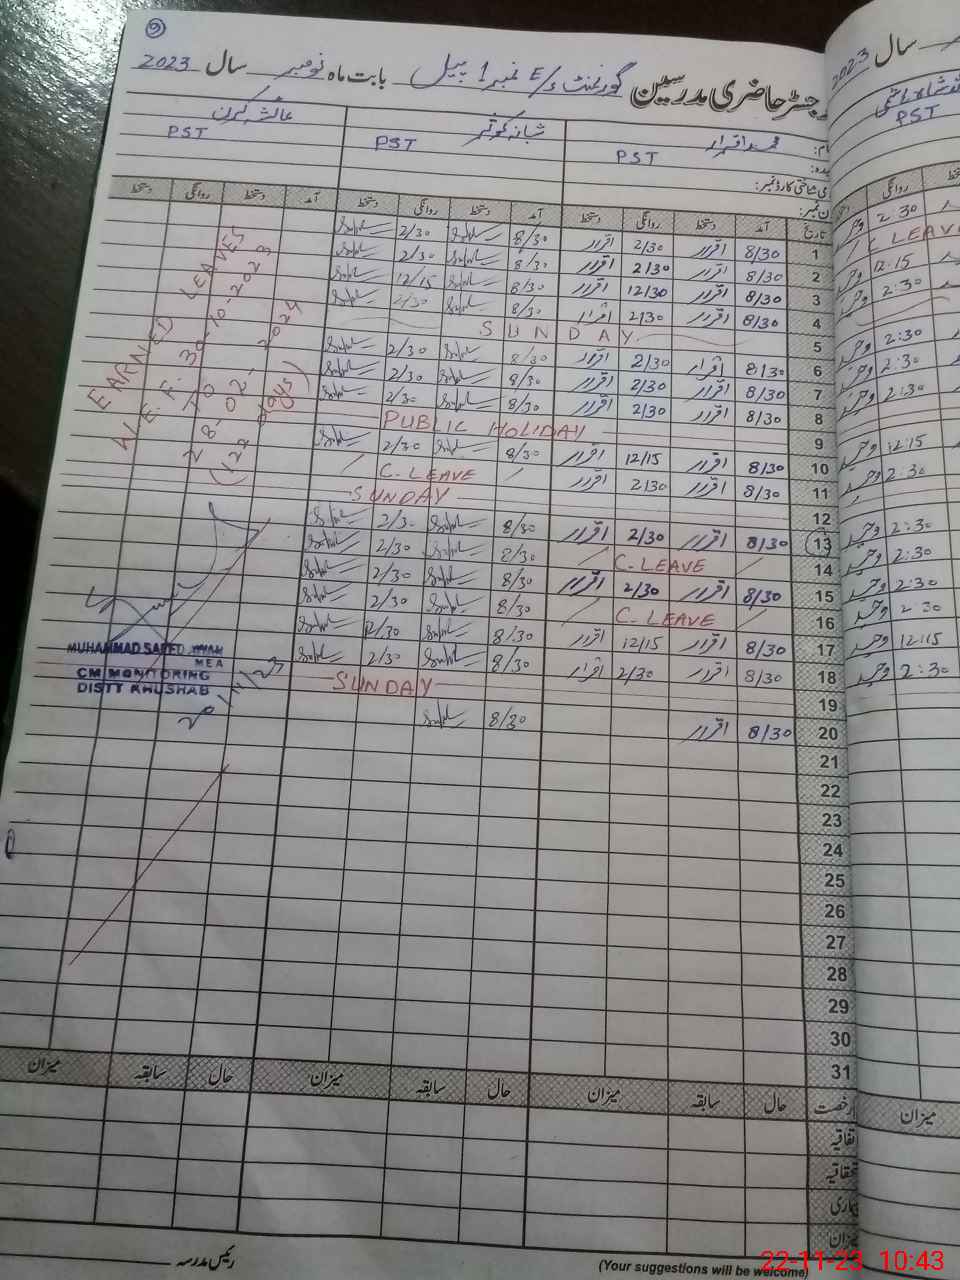 رجسٹر حاضری مدرسین گورنمنٹ E/S نمبر 1 پیل بابت ماہ نومبر سال 2023
محمد اقرار شبانہ کوثر عائشہ کرن
PST PST PST
تاریخ آمد دستخط روانگی دستخط آمد دستخط روانگی دستخط آمد دستخط روانگی دستخط
1 8/30 اقرار 2/30 اقرار 8/30 2/30
2 8/30 اقرار 2/30 اقرار 8/30 2/30
3 8/30 اقرار 12/30 اقرار 8/30 12/15
4 8/30 اقرار 2/30 اقرار 8/30 2/30
5 SUNDAY
6 8/30 اقرار 2/30 اقرار 8/30 2/30
7 8/30 اقرار 2/30 اقرار 8/30 2/30
8 8/30 اقرار 2/30 اقرار 8/30 2/30
9 PUBLIC HOLIDAY
10 8/30 اقرار 12/15 اقرار 8/30 2/30
11 8/30 اقرار 2/30 اقرار C. LEAVE
12 SUNDAY
13 8/30 اقرار 2/30 اقرار 8/30 2/30
14 C. LEAVE 8/30 2/30
15 8/30 اقرار 2/30 اقرار 8/30 2/30
16 C. LEAVE 8/30 2/30
17 8/30 اقرار 12/15 اقرار 8/30 12/30
18 8/30 اقرار 2/30 اقرار 8/30 2/30
19 SUNDAY
20 8/30 اقرار 8/30
21
22
23
24
25
26
27
28
29
30
31
EARNED LEAVES
W. E. F. 30-10-2023
TO
28-02-2024
(122 days)
MUHAMMAD SAEED
MEA
CM MONITORING
DISTT KHUSHAB
20/11/23
رخصت حال سابقہ میزان حال سابقہ میزان حال سابقہ میزان
اتفاقیہ
بیماری
میزان
رئیس مدرسہ
(Your suggestions will be welcome)
سال 2023
PST
روانگی
2:30
C. LEAVE
12:15
2:30
2:30
2:30
2:30
12:15
2:30
2:30
2:30
2:30
2:30
12:15
2:30
میزان
22-11-23 10:43